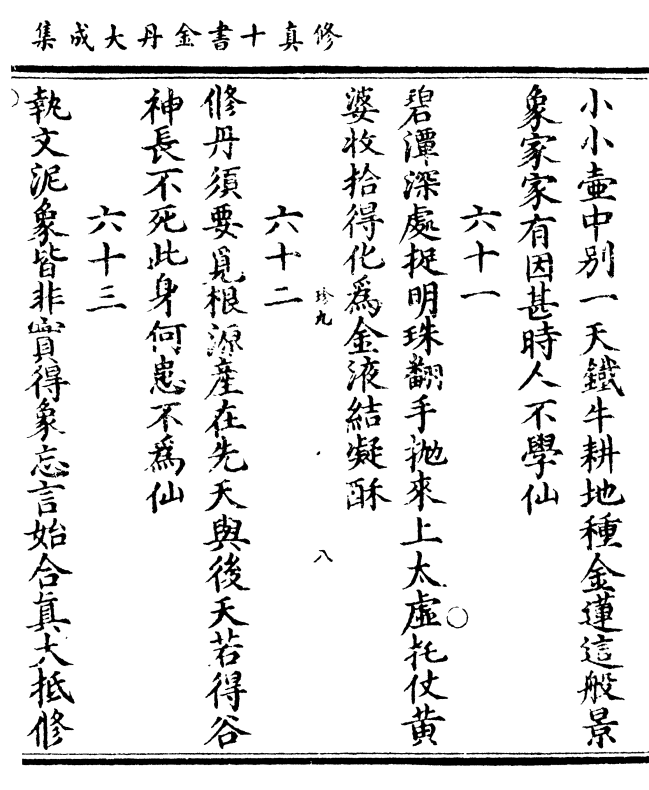 修真十書金丹大成集
小小壷中别一天鐵牛耕地種金蓮這般景
象家家有因甚時人不學仙
六十一
碧潭深處捉明珠翻手抛來上太虚托仗黄
婆收拾得化爲金液結凝酥
珍九
八
六十二
修丹須要覓根源産在先天與後天若得谷
神長不死此身何患不爲仙
六十三
執文泥象皆非實得象忘言始合眞大抵修